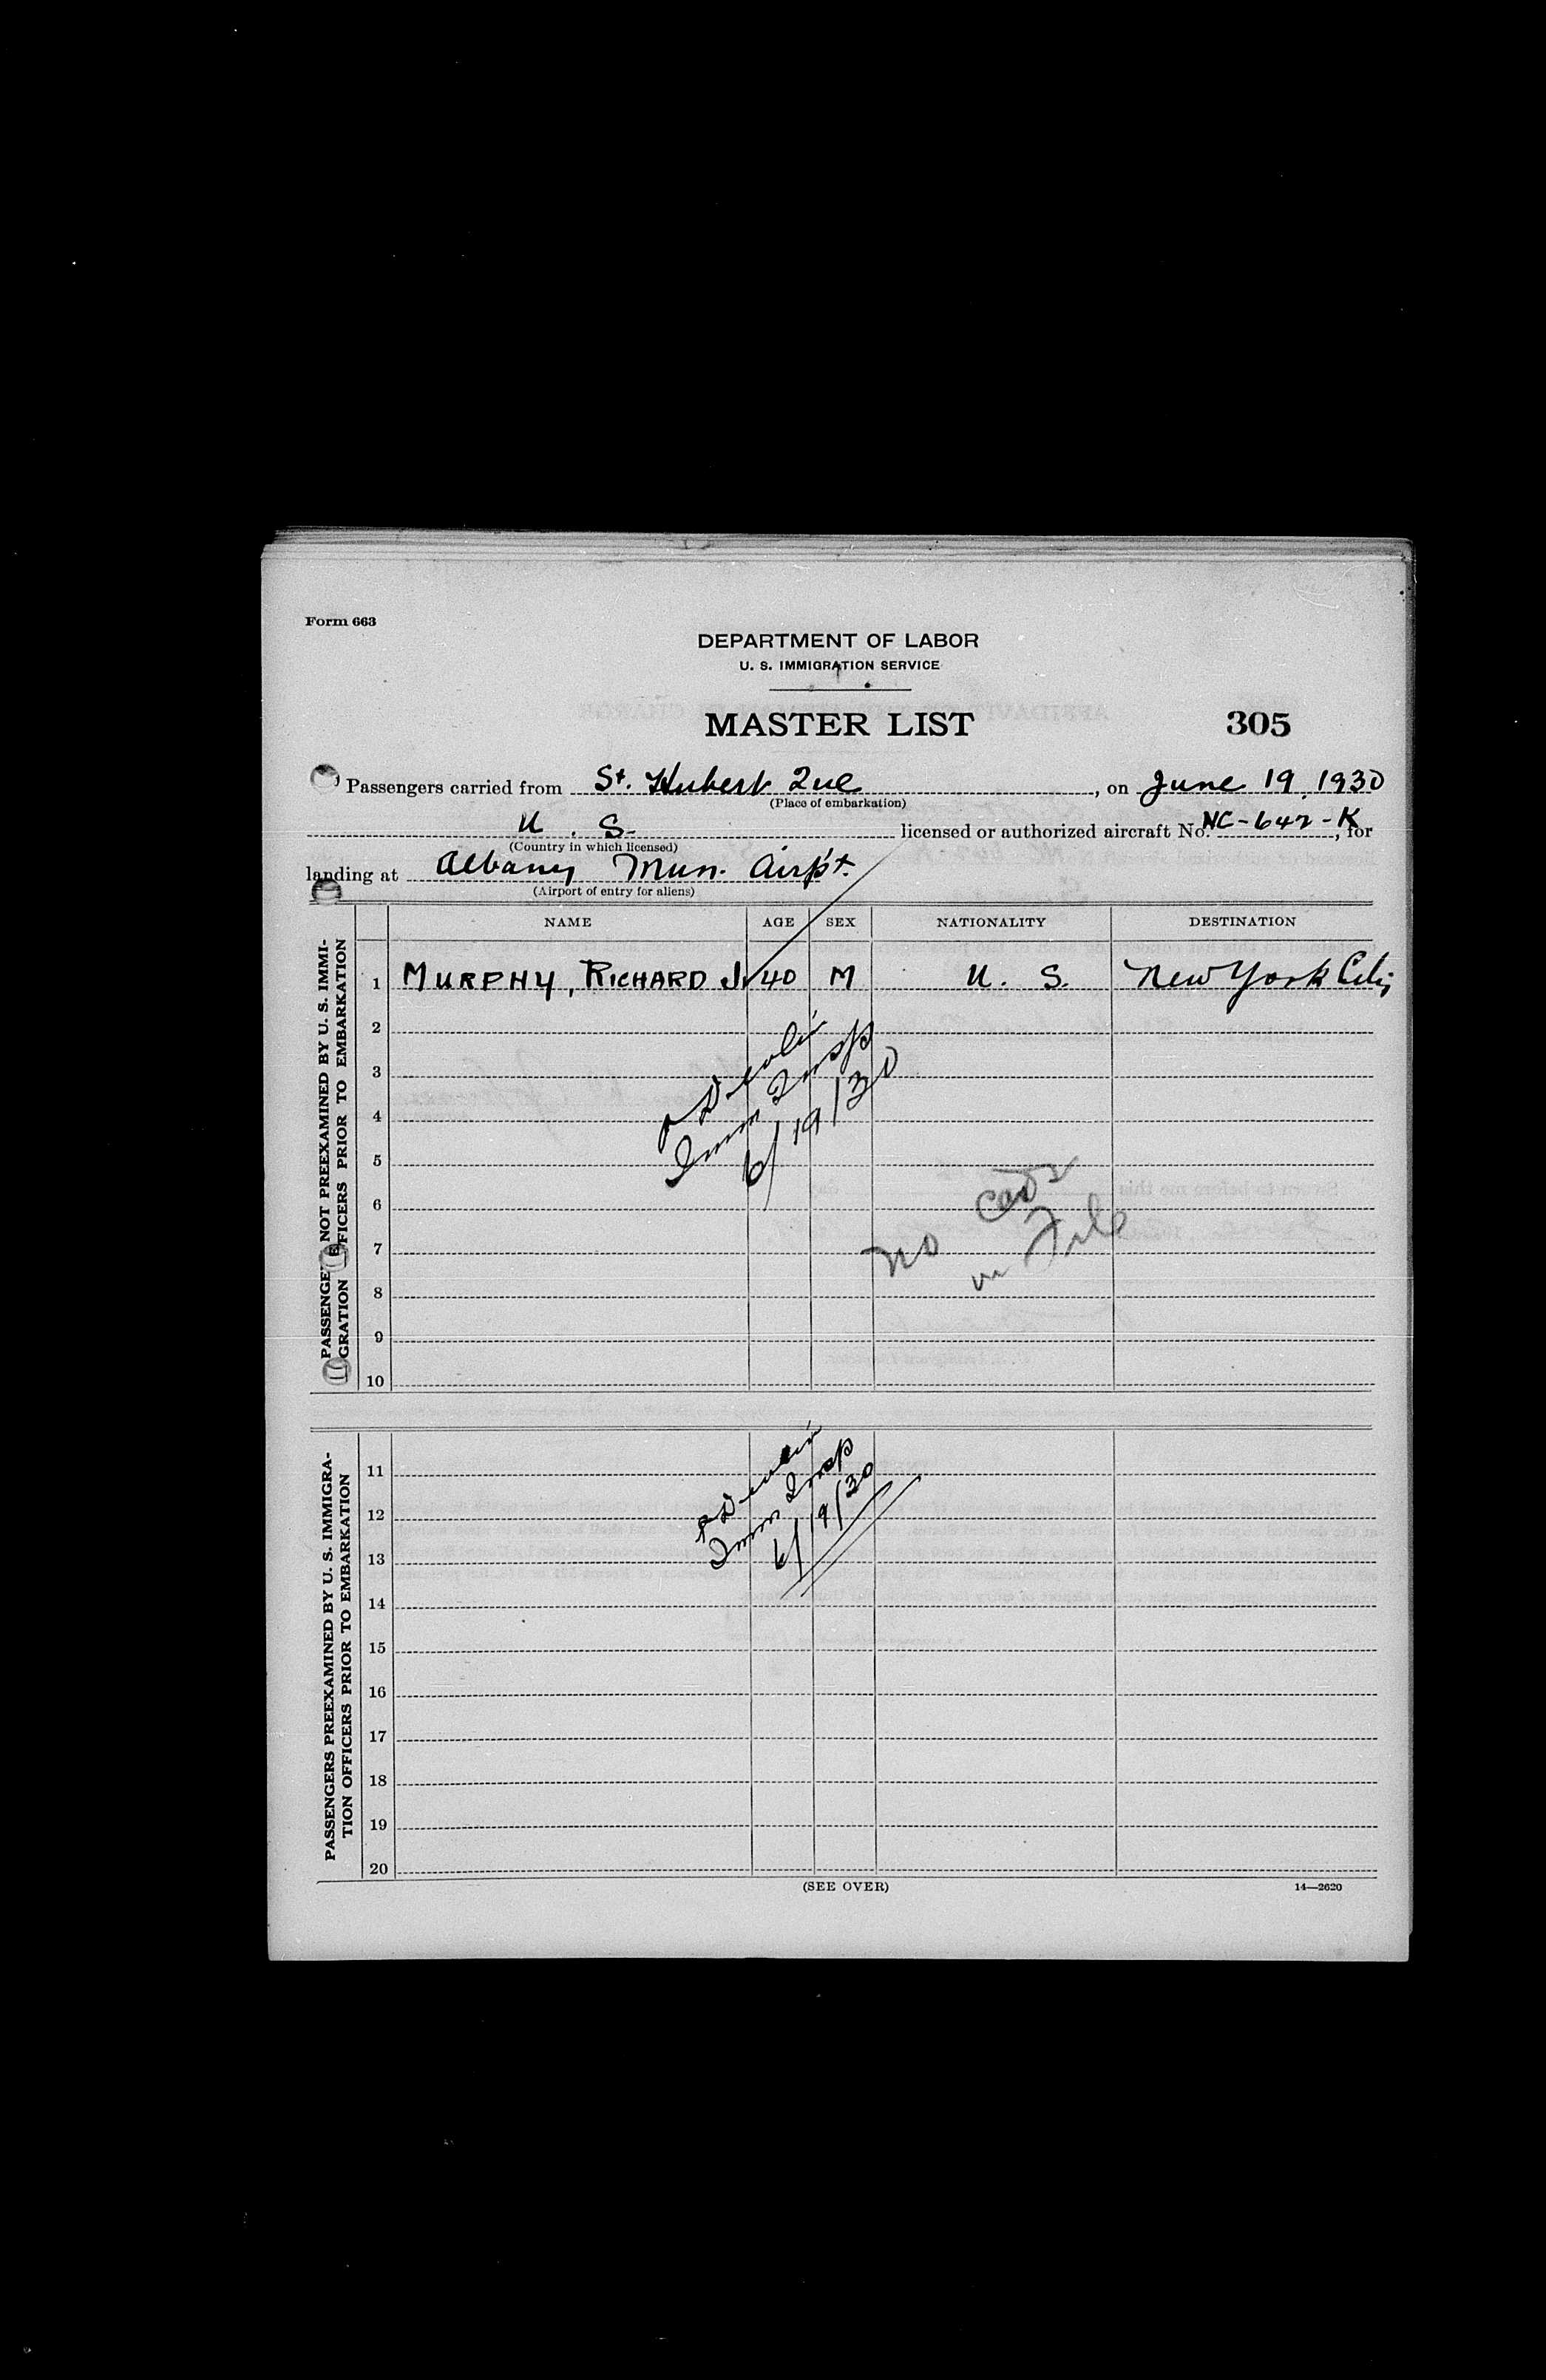 Form 663
DEPARTMENT OF LABOR
U. S. IMMIGRATION SERVICE
MASTER LIST
305
Passengers carried from St. Hubert Que, on June 19, 1930
(Place of embarkation)
U. S. licensed or authorized aircraft No. NC-642-K, for
(Country in which licensed)
landing at Albany Mun. Airpt.
(Airport of entry for aliens)
NAME AGE SEX NATIONALITY DESTINATION
PASSENGE NOT PREEXAMINED BY U. S. IMMI-
GRATION FFICERS PRIOR TO EMBARKATION
1 MURPHY, RICHARD J. 40 M U. S. New York City
2
3
4
5
6
7
8
9
10
Imm Insp
6/19/30
No Card
on File
PASSENGERS PREEXAMINED BY U. S. IMMIGRA-
TION OFFICERS PRIOR TO EMBARKATION
11
12
13
14
15
16
17
18
19
20
Imm Insp
6/19/30
(SEE OVER)
14—2620